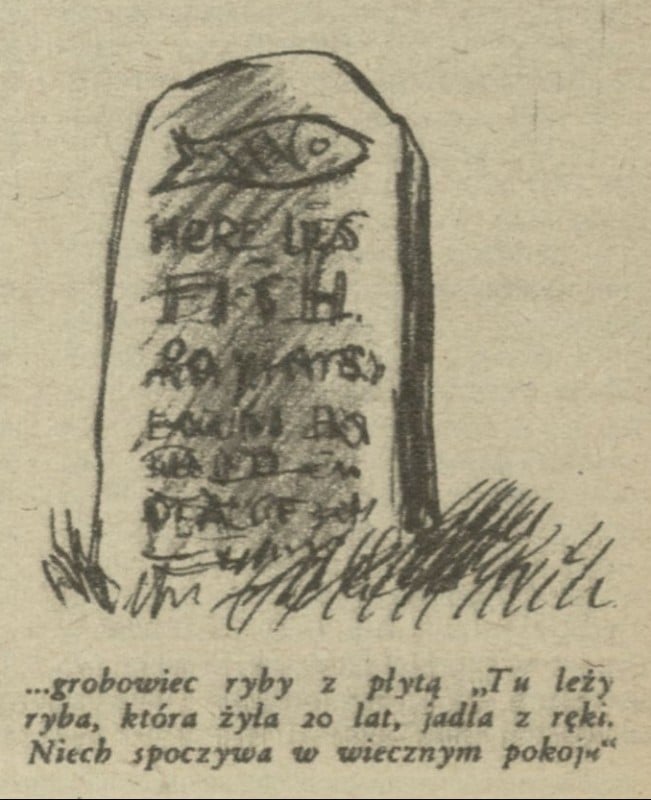 HERE LIES
FISH.
20
...grobowiec ryby z płytą „Tu leży
ryba, która żyła 20 lat, jadła z ręki.
Niech spoczywa w wiecznym pokoju“